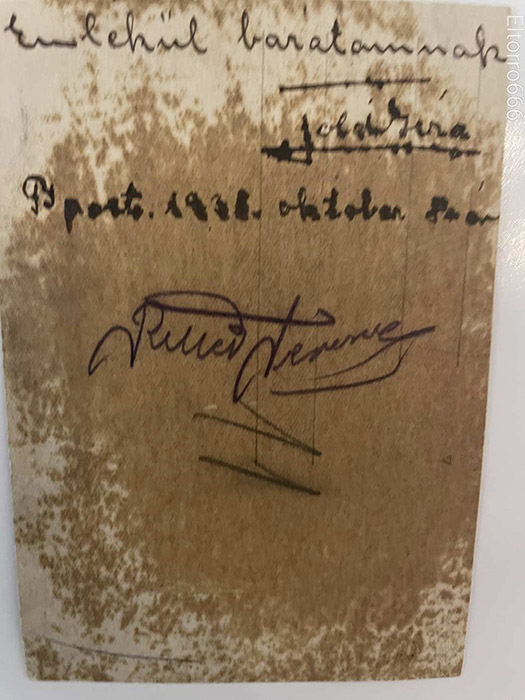 Emlékül barátomnak
Géza
Bpest. 1938. oktober 8-án
Ferenc
Eltorro666